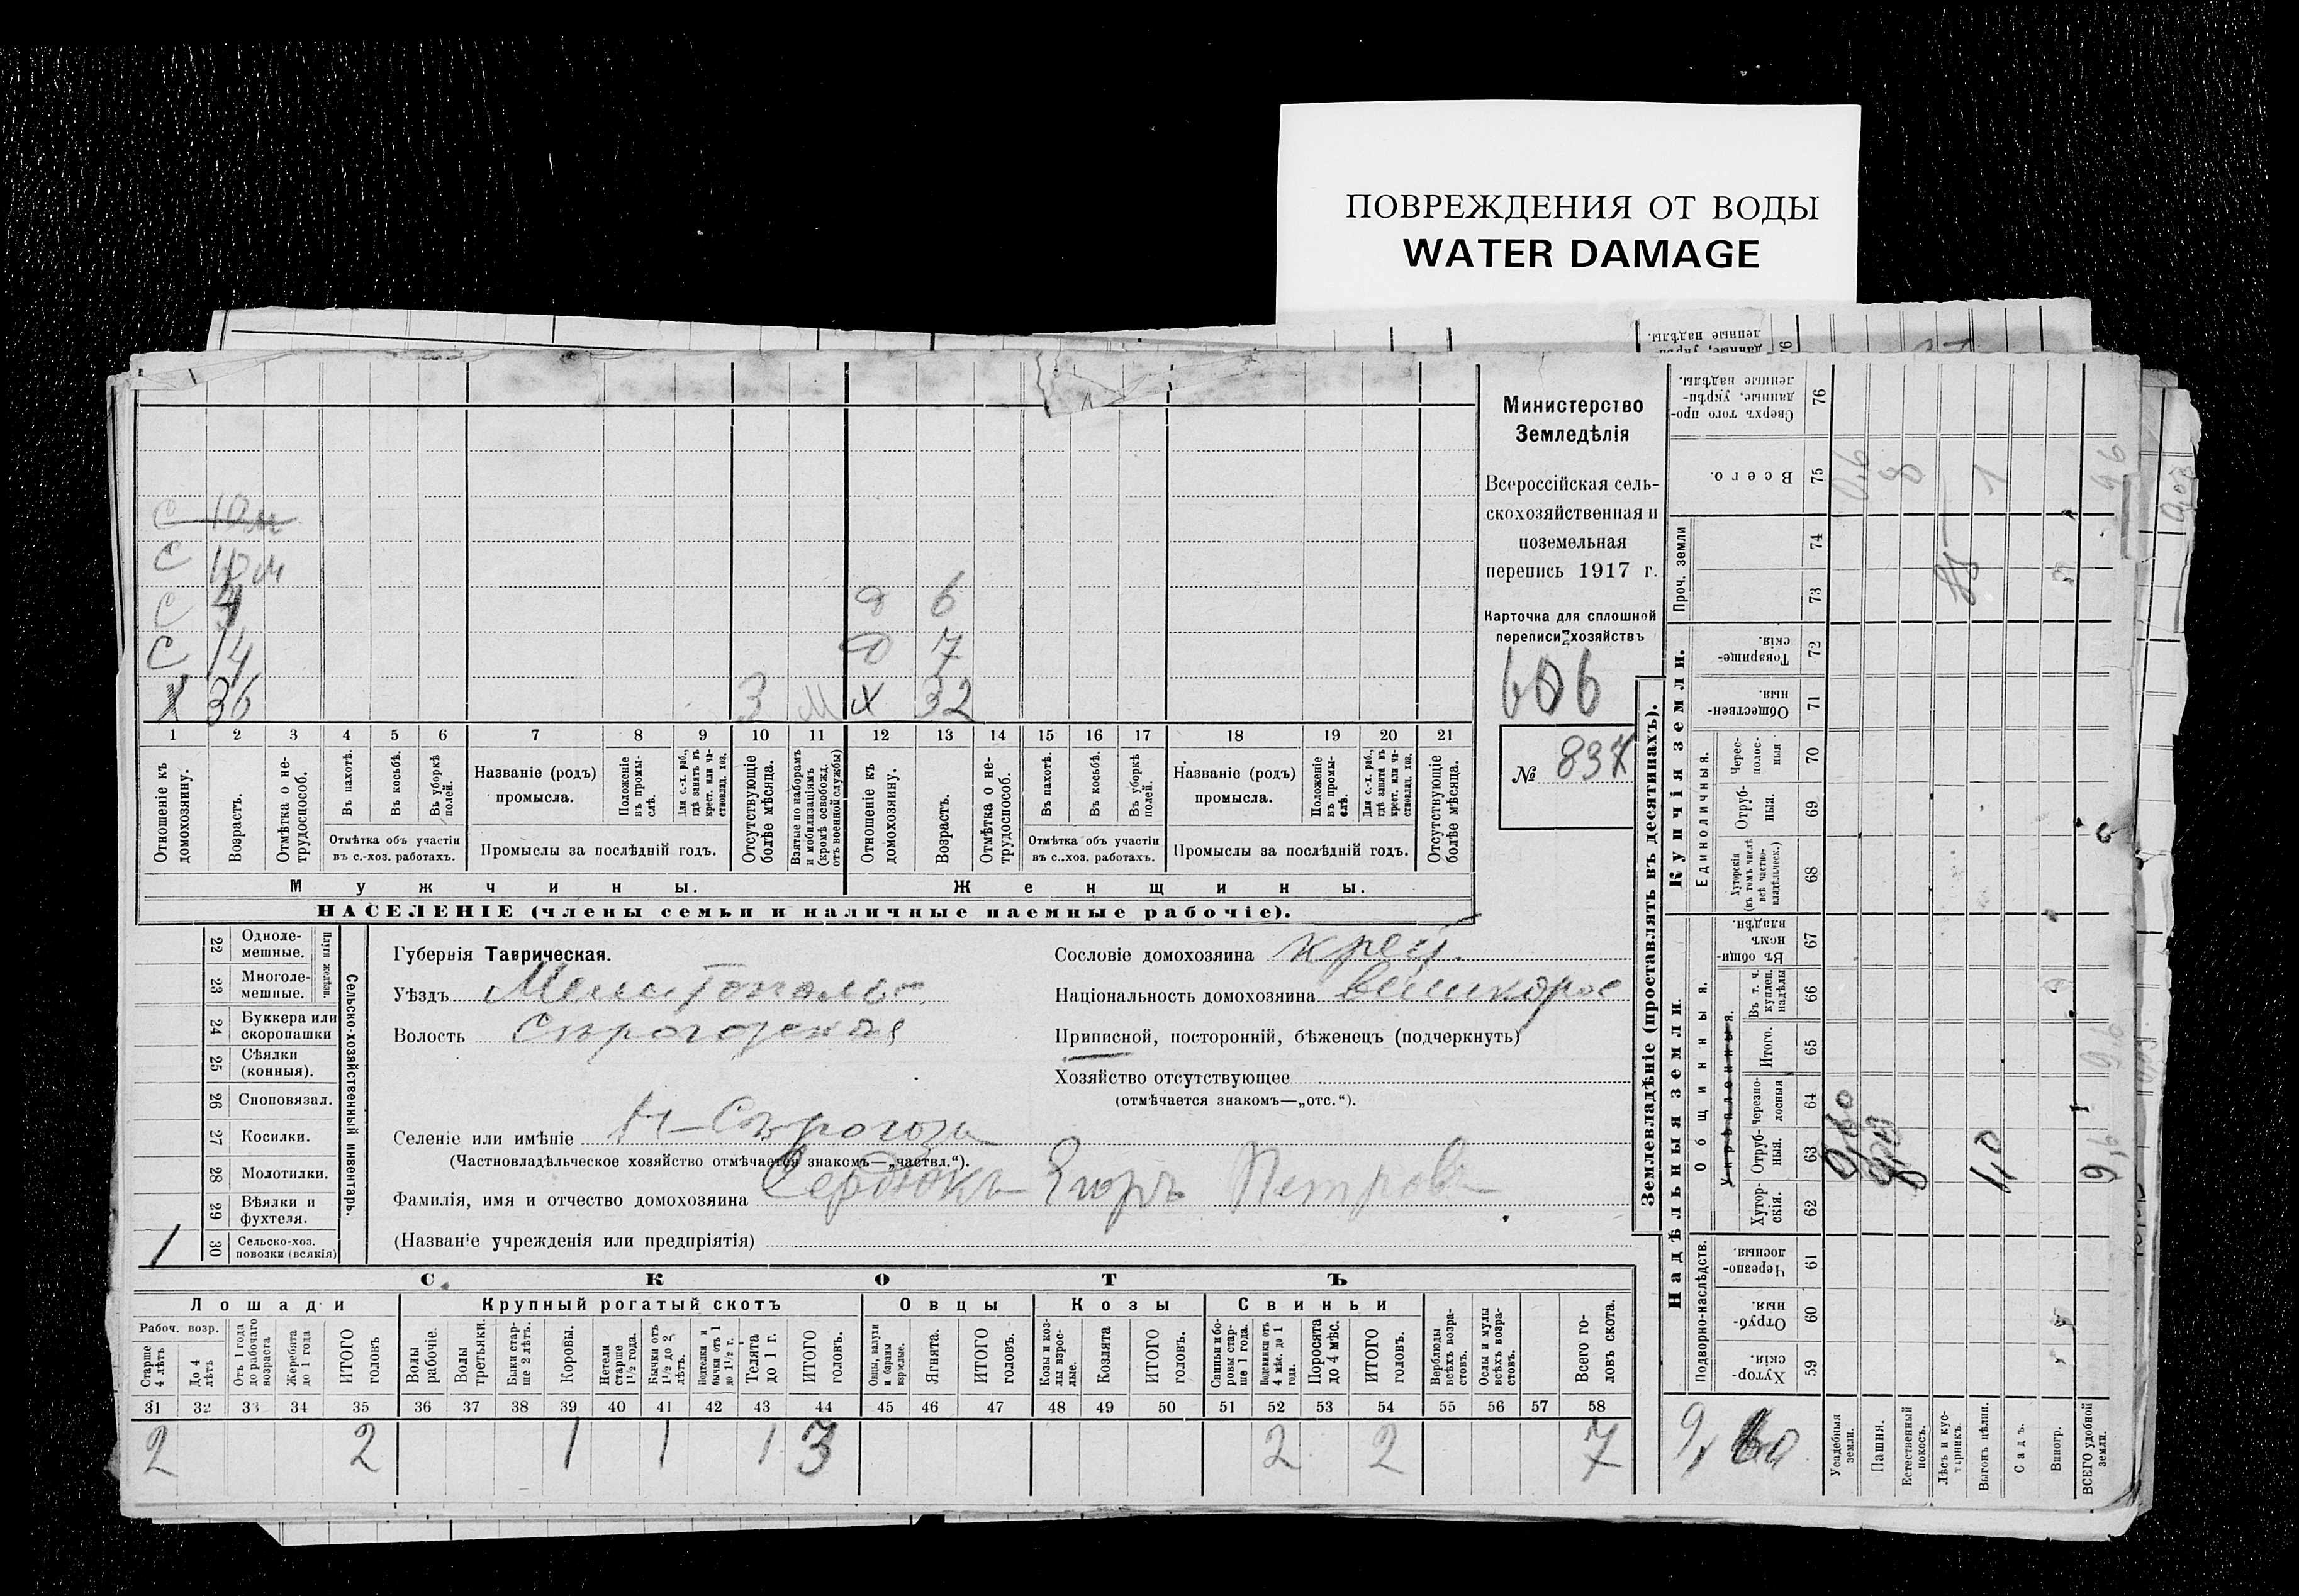 ПОВРЕЖДЕНИЯ ОТ ВОДЫ
WATER DAMAGE
Министерство
Земледѣлія
Всероссійская сель-
скохозяйственная и
поземельная
перепись 1917 г.
Карточка для сплошной
переписи хозяйствъ
606
№ 837
С 10 м
С 10 м
С
С 14 д 7
д 6
Х 36 3 М Х 32
1 2 3 4 5 6 7 8 9 10 11 12 13 14 15 16 17 18 19 20 21
Отношеніе къ домохозяину.
Возрастъ.
Отмѣтка о не-трудоспособ.
Въ пахотѣ.
Въ косьбѣ.
Въ уборкѣ полей.
Отмѣтка объ участіи
въ с.-хоз. работахъ.
Названіе (родъ)
промысла.
Положеніе въ промы-слѣ.
Для с.-х. раб., гдѣ занятъ въ крест. или ча-стновлад. хоз.
Промыслы за послѣдній годъ.
Отсутствующіе болѣе мѣсяца.
Взятые по наборамъ и мобилизаціямъ (кромѣ освобожд. отъ военной службы)
Отношеніе къ домохозяину.
Возрастъ.
Отмѣтка о не-трудоспособ.
Въ пахотѣ.
Въ косьбѣ.
Въ уборкѣ полей.
Отмѣтка объ участіи
въ с.-хоз. работахъ.
Названіе (родъ)
промысла.
Положеніе въ промы-слѣ.
Для с.-х. раб., гдѣ занята въ крест. или ча-стновлад. хоз.
Промыслы за послѣдній годъ.
Отсутствующіе болѣе мѣсяца.
Мужчины. Женщины.
НАСЕЛЕНІЕ (члены семьи и наличные наемные рабочіе).
Сельско-хозяйственный инвентарь.
Плуги желѣзн.
22 Одноле-мешные.
23 Многоле-мешные.
24 Буккера или скоропашки
25 Сѣялки (конныя).
26 Сноповязал.
27 Косилки.
28 Молотилки.
29 Вѣялки и фухтеля.
1 30 Сельско-хоз. повозки (всякія)
Губернія Таврическая.
Уѣздъ Мелитопальс
Волость Сѣрогозская
Селеніе или имѣніе Н-Сѣрогоза
(Частновладѣльческое хозяйство отмѣчается знакомъ—„частвл.“).
Фамилія, имя и отчество домохозяина Сердюкъ Егоръ Петров
(Названіе учрежденія или предпріятія)
Сословіе домохозяина крест.
Національность домохозяина великорос
Приписной, посторонній, бѣженецъ (подчеркнуть)
Хозяйство отсутствующее
(отмѣчается знакомъ—„отс.“).
СКОТЪ
Лошади Крупный рогатый скотъ Овцы Козы Свиньи
Рабоч. возр.
Старше 4 лѣтъ
До 4 лѣтъ
Отъ 1 года до рабочаго возраста
Жеребята до 1 года
ИТОГО головъ
Волы рабочіе.
Волы третьяки.
Быки стар-ше 2 лѣтъ.
Коровы.
Нетели старше 1½ года.
Бычки отъ 1½ до 2 лѣтъ.
Подтелки и бычки отъ 1 до 1½ г.
Телята до 1 г.
ИТОГО головъ.
Овцы, валухи и бараны взрослые.
Ягнята.
ИТОГО головъ.
Козы и коз-лы взрос-лые.
Козлята
ИТОГО головъ.
Свиньи и бо-ровы стар-ше 1 года.
Подсвинки отъ 4 мѣс. до 1 года.
Поросята до 4 мѣс.
ИТОГО головъ.
Верблюды всѣхъ возра-стовъ.
Ослы и мулы всѣхъ возра-стовъ.
Всего го-ловъ скота.
31 32 33 34 35 36 37 38 39 40 41 42 43 44 45 46 47 48 49 50 51 52 53 54 55 56 57 58
2 2 1 1 1 3 2 2 7
Землевладѣніе (проставлять въ десятинахъ).
Купчія земли.
Сверхъ того про-данные, укрѣп-ленные надѣлы. 76
Всего. 75
Проч. земли 74 73
Товарище-скія. 72
Обществен-ныя. 71
Единоличныя.
Черес-полос-ныя 70
Отруб-ныя. 69
Хуторскія (въ томъ числѣ всѣ частно-владѣльческ.) 68
Надѣльныя земли.
Общинныя.
Въ общин-номъ владѣн. 67
Укрѣпленныя.
Въ т. ч. куплен. надѣлы 66
Итого. 65
Черезпо-лосныя 64
Отруб-ныя. 63
Хутор-скія. 62
Подворно-наслѣдств.
Черезпо-лосныя. 61
Отруб-ныя. 60
Хутор-скія. 59
Усадебныя земли.
Пашня.
Естественный покосъ.
Лѣсъ и кус-тарникъ.
Выгонъ цѣлин.
Садъ.
Виногр.
ВСЕГО удобной земли.
0,6 8 1 9,6